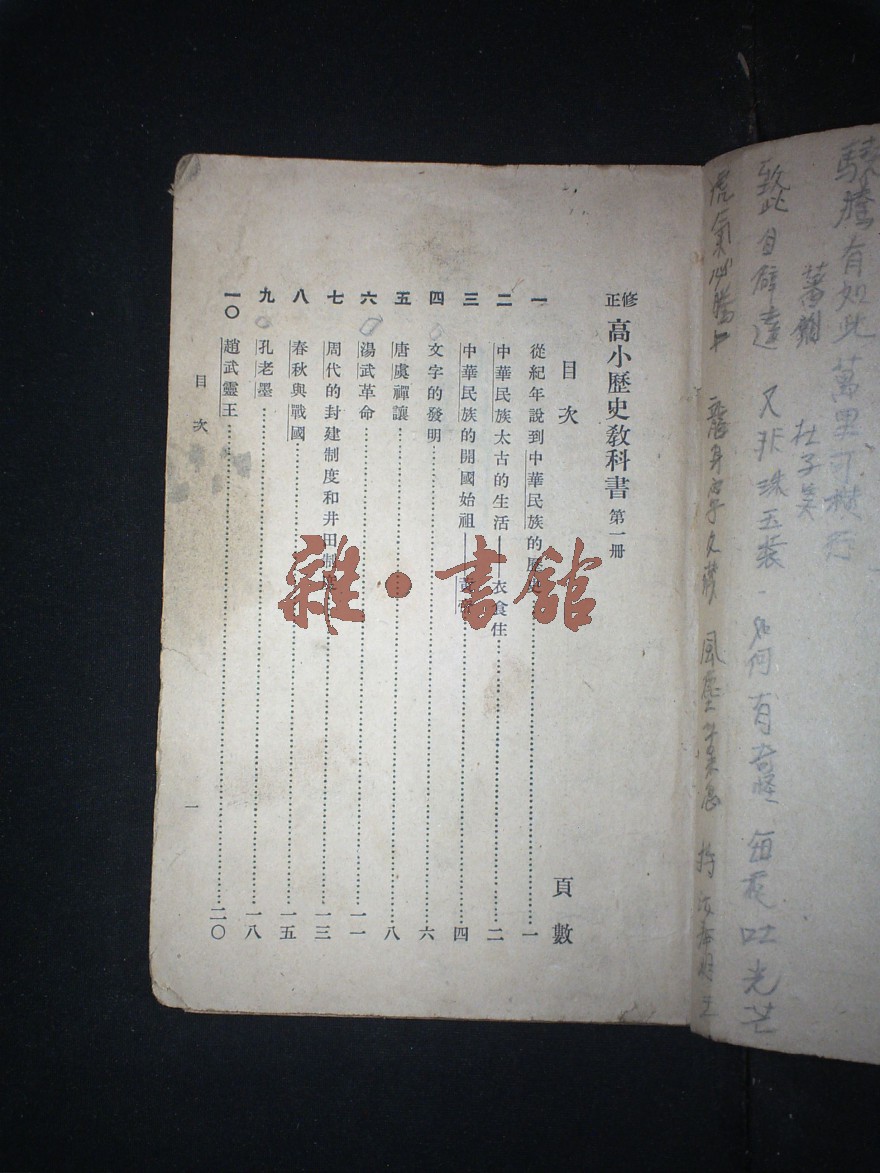 驍騰有如此 萬里可橫行
蕃劍
杜子美
致此自僻遠 又非珠玉裝
如何有奇怪 每夜吐光芒
虎氣必騰上 龍身寧久藏
風塵苦未息 持汝奉明王
修正 高小歷史教科書 第一冊
目次 頁數
一 從紀年說到中華民族的歷史 一
二 中華民族太古的生活——衣食住 二
三 中華民族的開國始祖——黃帝 四
四 文字的發明 六
五 唐虞禪讓 八
六 湯武革命 一一
七 周代的封建制度和井田制度 一三
八 春秋與戰國 一五
九 孔老墨 一八
一〇 趙武靈王 二〇
目次 一
雜·書館